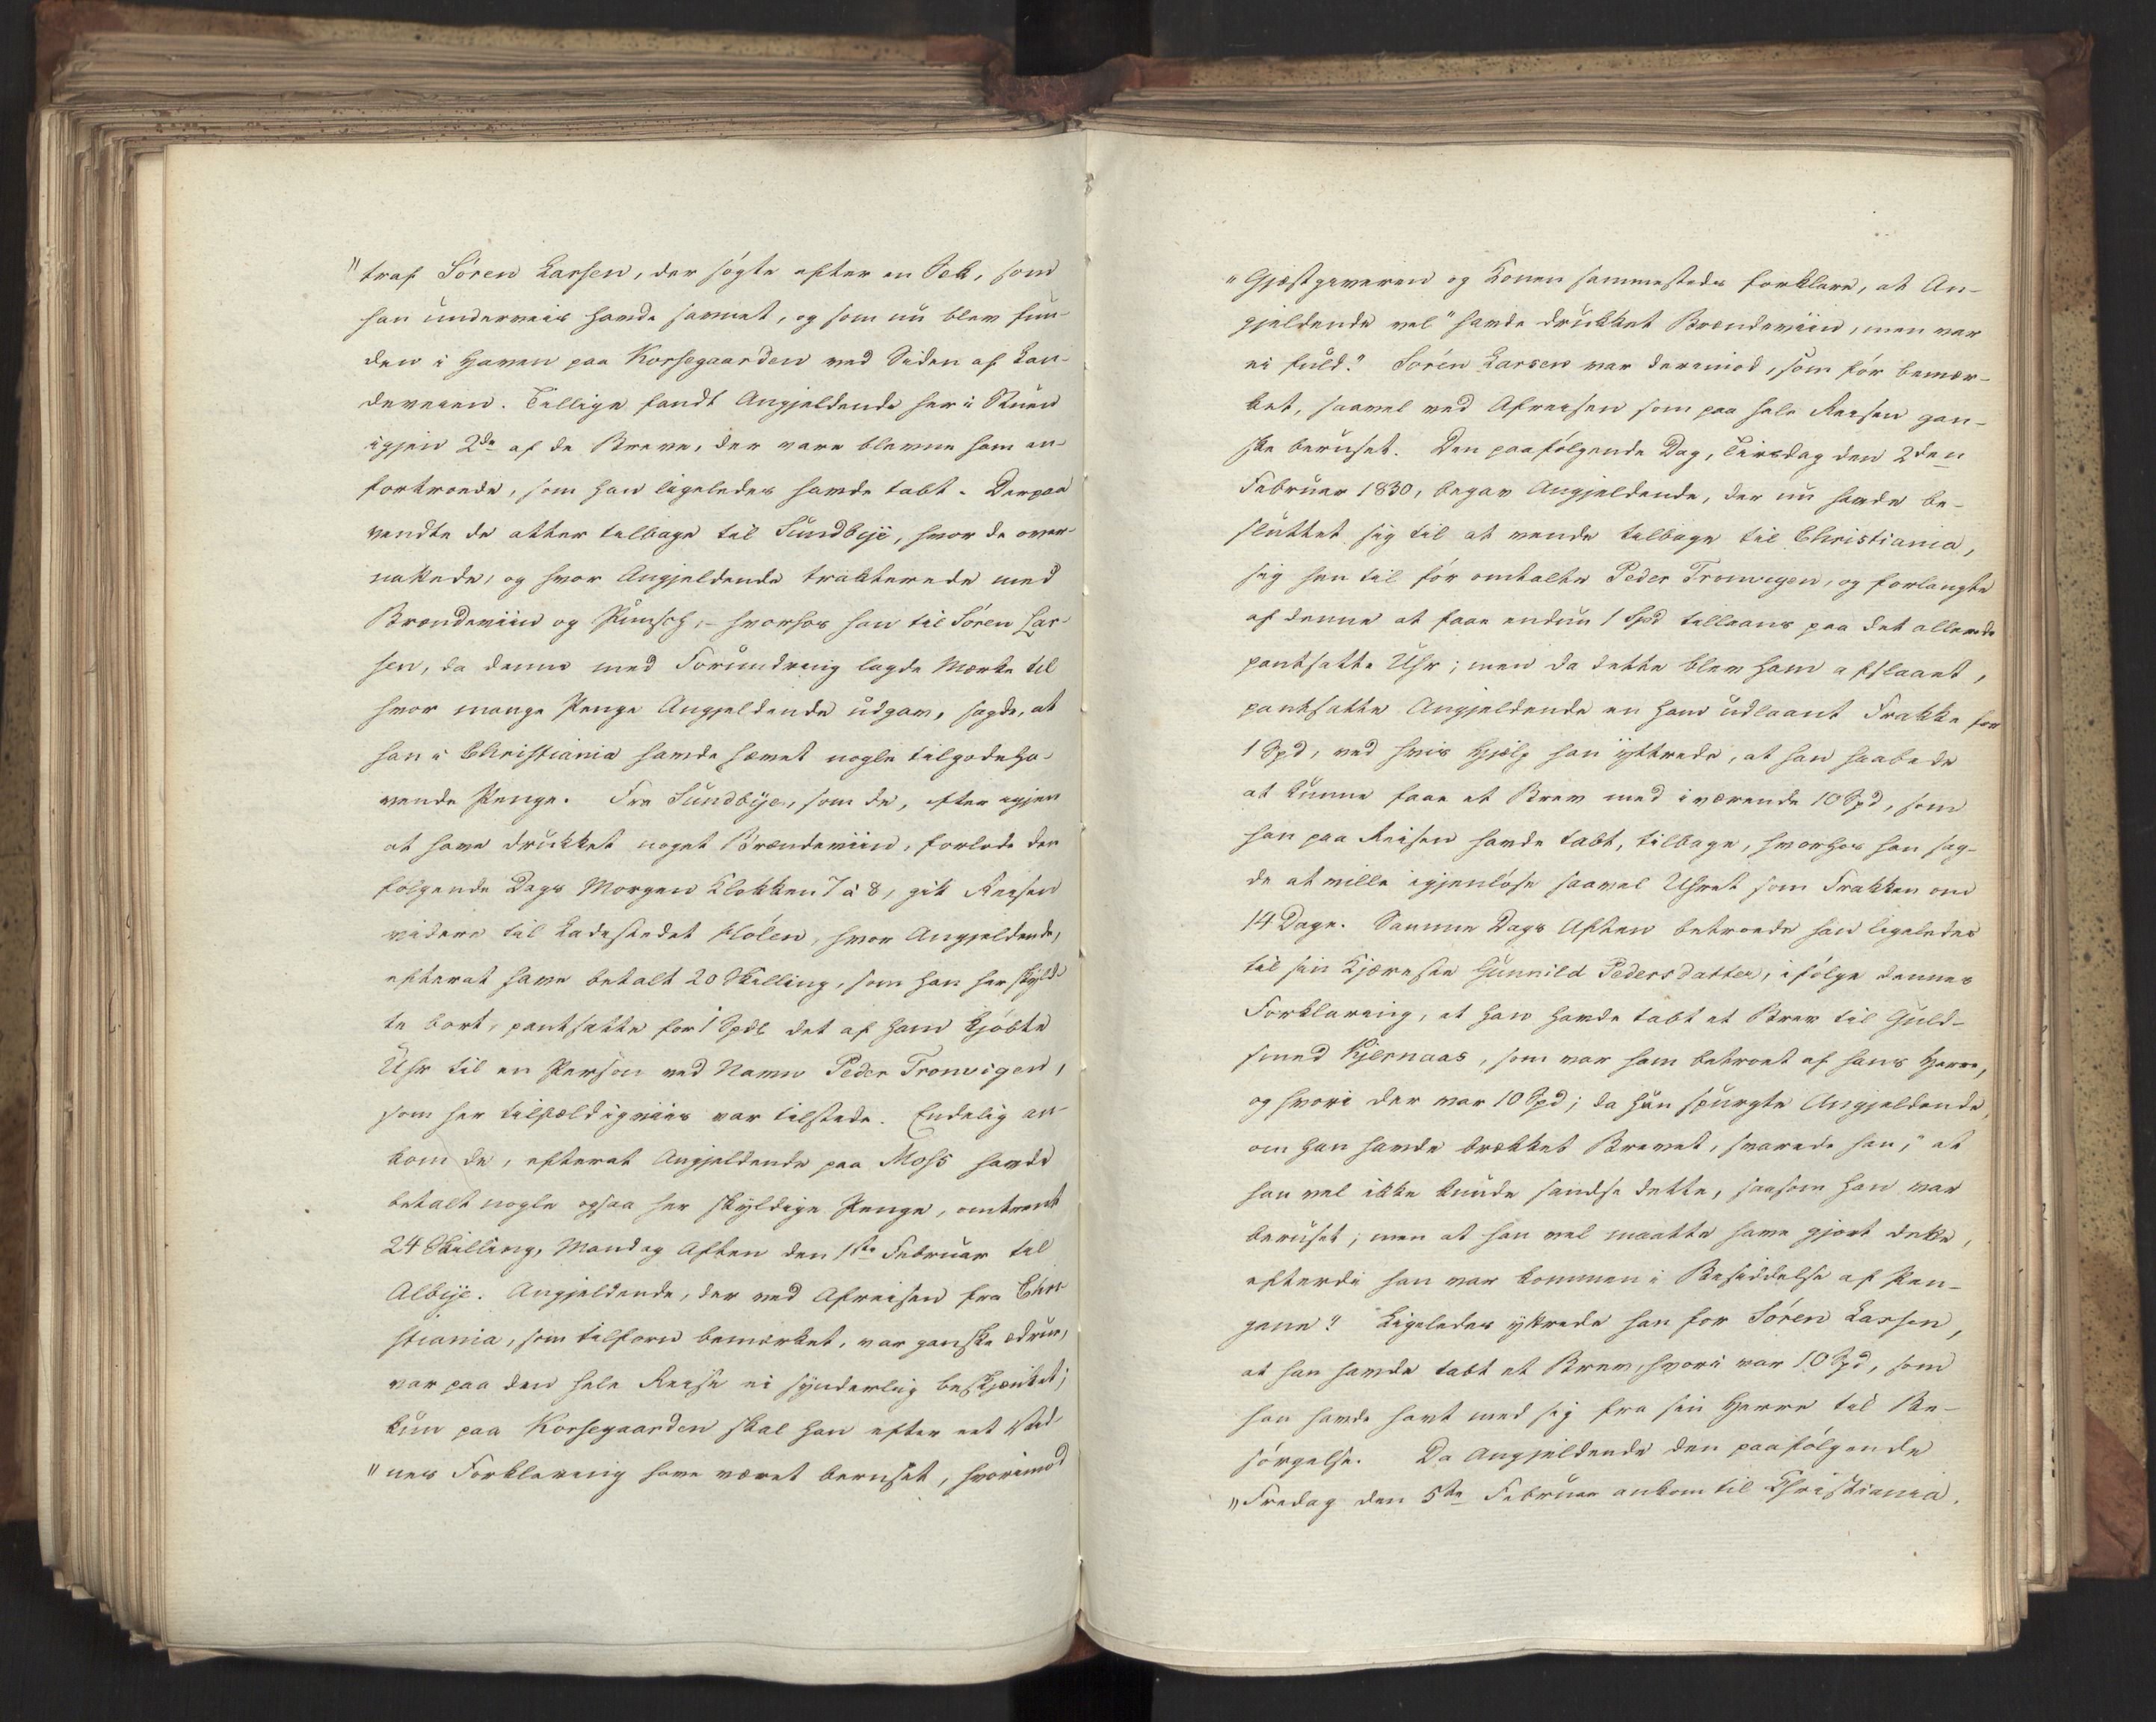 "traf Sören Larsen, der søgte efter en Sæk, som
han underveis havde savnet, og som nu blev fun-
den i Haven paa Korsegaarden ved Siden af Lan-
deveien. Tillige fandt Angjeldende her i Stuen
igjen 2de af de Breve, der vare blevne ham an-
fortroede, som han ligeledes havde tabt. Derpaa
vendte de atter tilbage til Sundbÿe, hvor de over-
nattede, og hvor Angjeldende trakterede med
Brændeviin og Punsch, - hvorhos han til Sören Lar-
sen, da denne med Forundring lagde Mærke til
hvor mange Penge Angjeldende udgav, sagde, at
han i Christiania havde hævet nogle tilgodeha-
vende Penge. Fra Sundbÿe, som de, efter igjen
at have drukket noget Brændeviin, forlode den
følgende Dags Morgen Klokken 7 à 8, gik Reisen
videre til Ladestedet Hölen, hvor Angjeldende,
efterat have betalt 20 Skilling, som han her skyld-
te bort, pantsatte for 1 Spdl det af ham kjøbte
Uhr til en Person ved Navn Peder Tronvigen,
som her tilfældigviis var tilstede. Endelig an-
kom de, efterat Angjeldende paa Moss havde
betalt nogle ogsaa her skyldige Penge, omtrent
24 Skilling, Mandag Aften den 1ste Februar til
Albÿe. Angjeldende, der ved Afreisen fra Chri-
stiania, som tilforn bemærket, var ganske ædrue,
var paa den hele Reise ei synderlig beskjænket;
kun paa Korsegaarden skal han efter eet Vid-
"nes Forklaring have været beruset, hvorimod
"Gjæstgiveren og Konen sammesteds forklare, at An-
gjeldende vel "havde drukket Brændeviin, men var
ei fuld." Sören Larsen var derimod, som før bemær-
ket, saavel ved Afreisen som paa hele Reisen gan-
ske beruset. Den paafølgende Dag, Tirsdag den 2den
Februar 1830, begav Angjeldende, der nu havde be-
sluttet sig til at vende tilbage til Christiania,
sig hen til før omtalte Peder Tronvigen, og forlangte
af denne at faae endnu 1 Spd tillaans paa det allerede
pantsatte Uhr; men da dette blev ham afslaaet,
pantsatte Angjeldende en ham udlaant Frakke for
1 Spd, ved hvis Hjælp han yttrede, at han haabede
at kunne faae et Brev med iværende 10 Spd, som
han paa Reisen havde tabt, tilbage, hvorhos han sag-
de at ville igjenløse saavel Uhret som Frakken om
14 Dage. Samme Dags Aften betroede han ligeledes
til sin Kjæreste Gunnild Pedersdatter, ifølge dennes
Forklaring, at han havde tabt et Brev til Guld-
smed Kjernaas, som var ham betroet af hans Herre,
og hvori der var 10 Spd; da hun spurgte Angjeldende,
om han havde brækket Brevet, svarede han, "at
han vel ikke kunde sandse dette, saasom han var
beruset; men at han vel maatte have gjort dette,
efterdi han var kommen i Besiddelse af Pen-
gene." Ligeledes yttrede han for Sören Larsen,
at han havde tabt et Brev, hvori var 10 Spd, som
han havde havt med sig fra sin Herre til Be-
sørgelse. Da Angjeldende den paafølgende
"Fredag den 5te Februar ankom til Christiania,